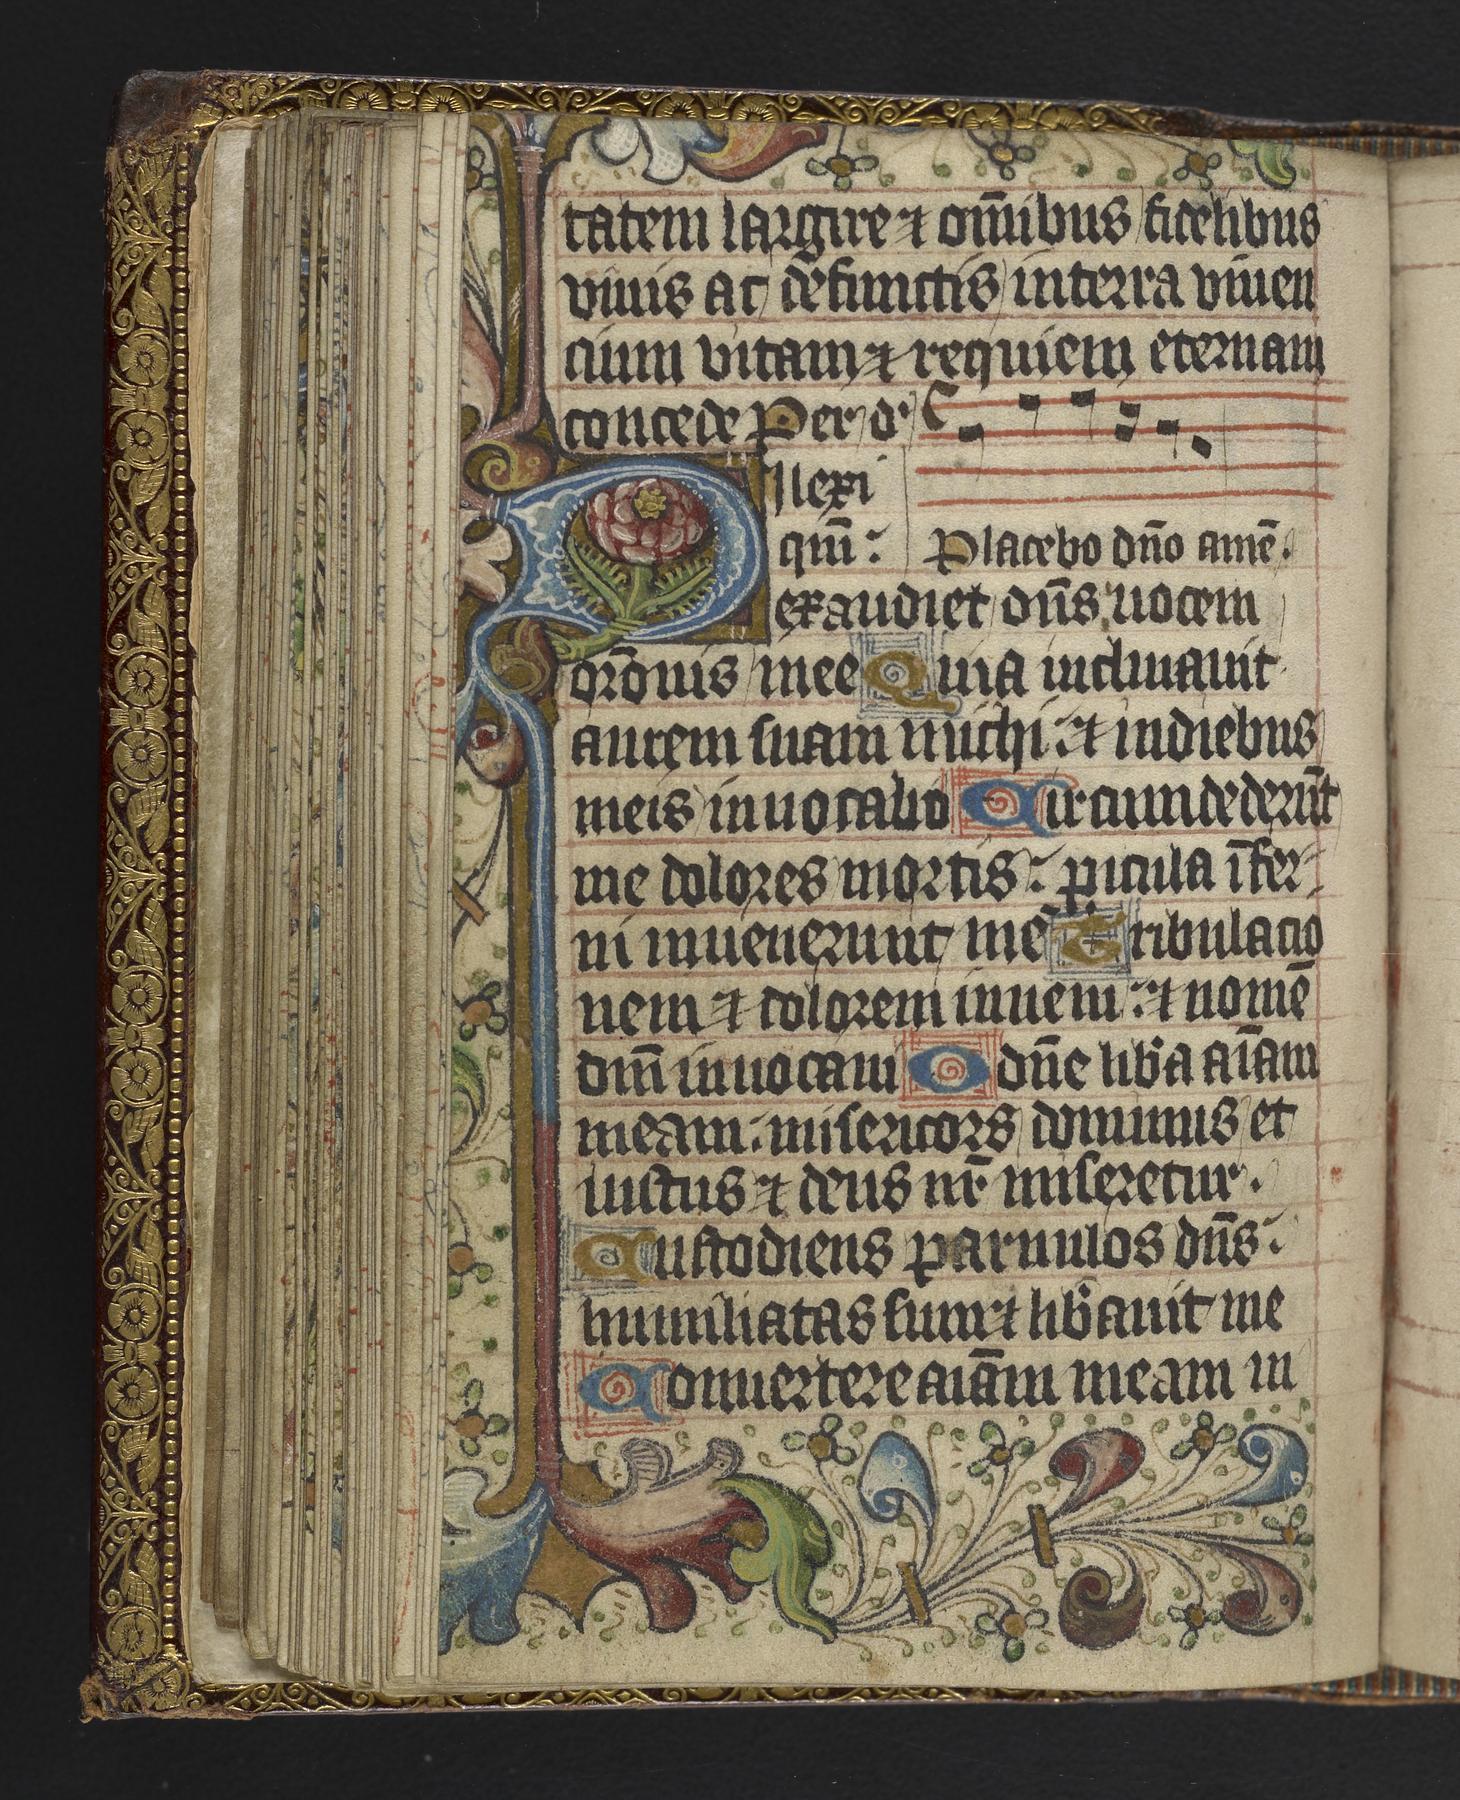 tatem largire ⁊ om̄ibus fidelibus
viuis ac defunctis in terra viuen
cium vitam ⁊ requiem eternam
concede Per d'
Dilexi
qm̄: Placebo dn̄o amē.
exaudiet dn̄s uocem
or̄onis mee Quia inclinauit
aurem suam michi: ⁊ in diebus
meis inuocabo Circumdederūt
me dolores mortis: ꝑicula īfer-
ni inuenerunt me Tribulacio
nem ⁊ dolorem inueni: ⁊ nomē
dn̄i inuocaui O dn̄e lib̄a aīam
meam: misericors dominus et
iustus ⁊ deus nr̄ miseretur.
Custodiens paruulos dn̄s:
humiliatus sum ⁊ lib̄auit me
Conuertere aīam meam in